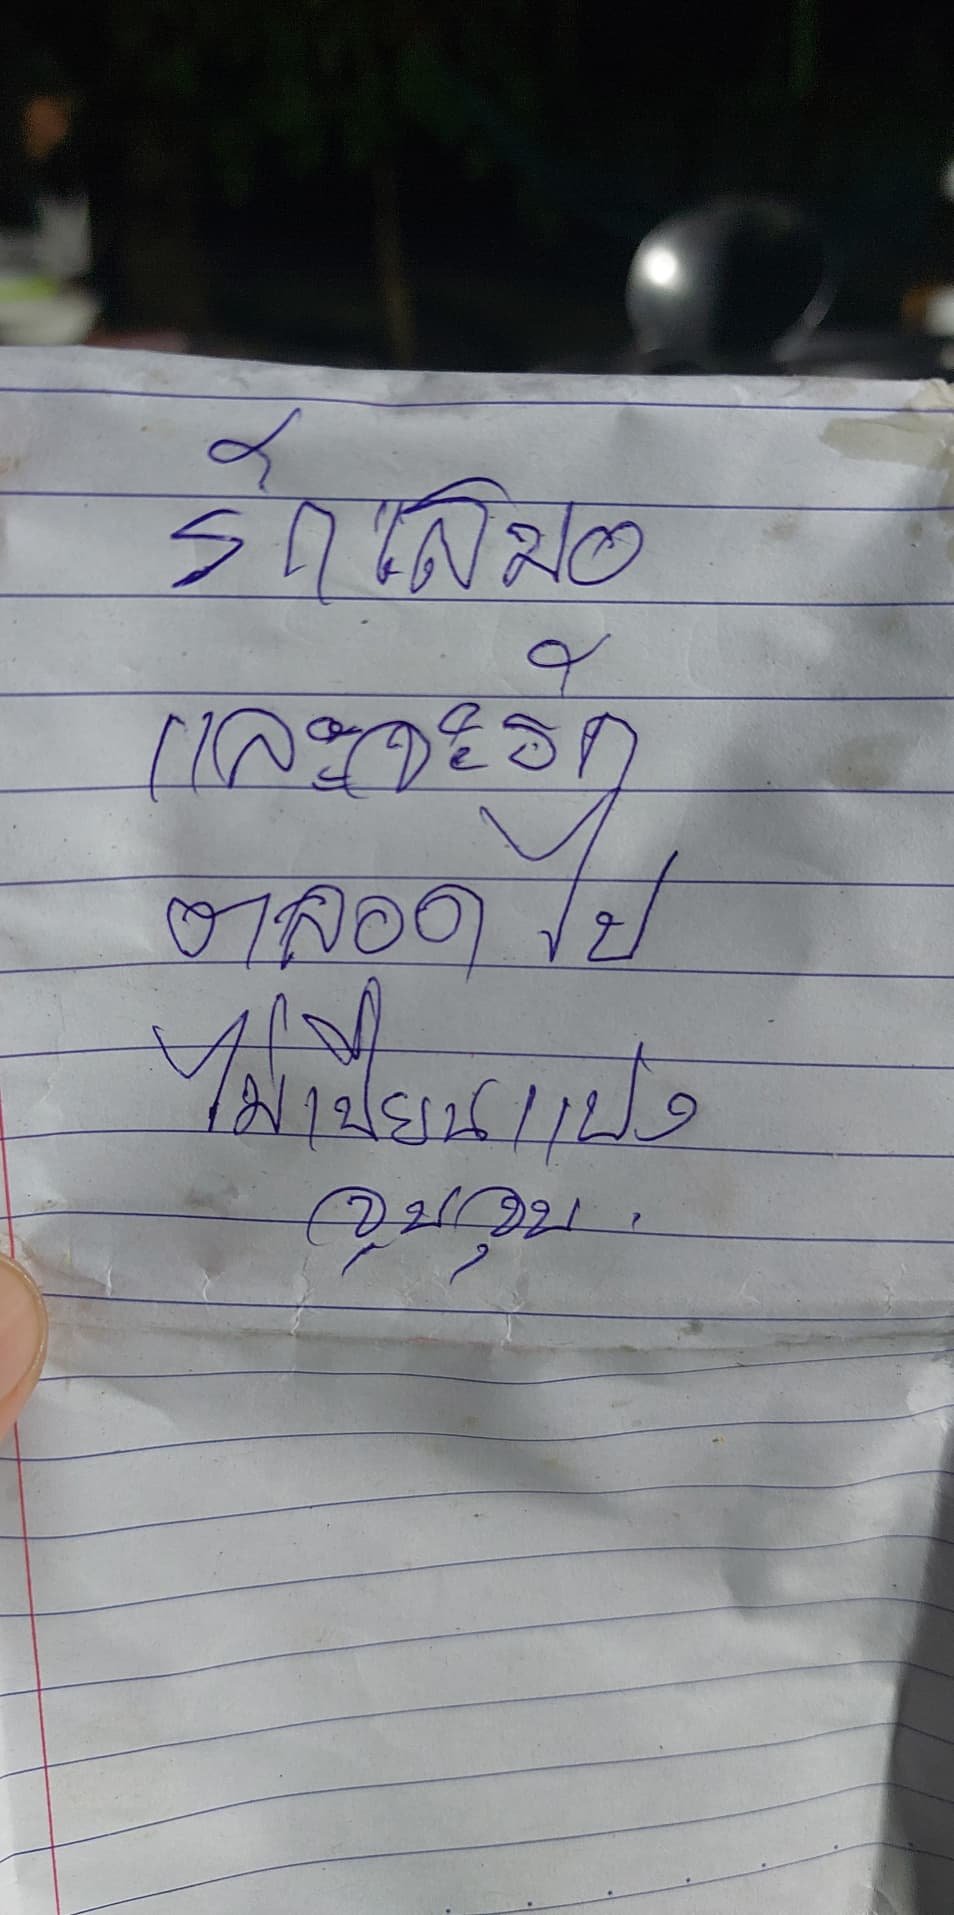 รักเสมอ
และจะรัก
ตลอดไป
ไม่เปียนแปง
จุบจุบ.